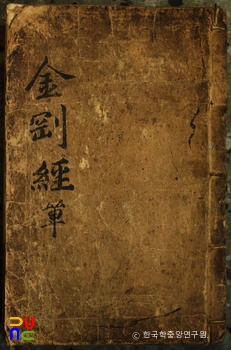 金剛經
單
© 한국학중앙연구원